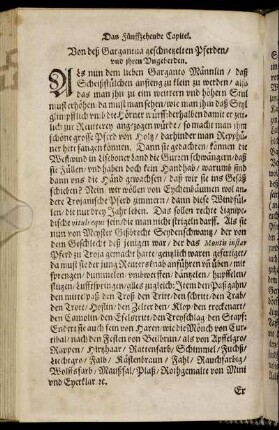 Das Fünffzehende Capitel.
Von deß Gargantua geschnetzelten Pferden/
vnd jhren Vngeberden.
ALs nun dem lieben Garganto Männlin / daß
Scheißstülchen anfieng zu klein zu werden / also
das man jhn zu eim weittern vnd höhern Stul
must erhöhen da muß man sehen / wie man jhm daß
glimpfflich vnd die Hörner deßhalben damit er
zlich zur Reuterey angezogen würde / so macht man jhm
schöne grosse Pferd von Holtz / darhinder man Repphü-
ner hett fangen können. Dann sie gedachten / können die
Westwind in Lisconer Land die Gurren schwängern / daß
sie Füllen / vnd haben doch kein Handhab / warumb sind
dann vns die Händ gewachsen / daß wir sie ins Gesäß
schieben? Nein / wir wöllen von Eychenbäumen wol an-
dere Troianische Pferd zimmern / dann diese Windfül-
len / die nur drey Jahr leben. Das sollen rechte
dische equi sein / die man nicht striglen darff. Als sie
nun von Meyster Gißbrecht Seydenschwang / der von
dem Geschlecht deß jenigen war / der das Montis instar
Pferd zu Troja gemacht hatte / gentzlich waren gefertiget /
da must sie der jung Reuter stäts anführen vn üben / mit
sprengen / dummelen / vmbwerffen / dantzelen / hupffelen /
stutzen / Lufftspringen / alles zugleich: Jtem den Paß gahn /
den mittelpaß / den Troß / den Tritt / den schritt / den Trab /
den Trott / Hosten / den Zelter den / Klop / den trockenart /
den Camolin / den Eselstritt / den Treyschlag / den Stapff:
Endert sie auch fein von Haren / wie die Mönch von Cur-
tibal / nach den Festen von Weilbrun / als von Apffelgro /
Rappen / Hirtzhaar / Rattenfarb / Schimmel / Fuchß /
Liechtgro / Falb / Kästenbraun / Fahl / Rauchfarbig /
Wolffsfarb / Maußfal / Plaß / Rothgemalte von Mini
vnd Eyerklar ꝛc.
Er